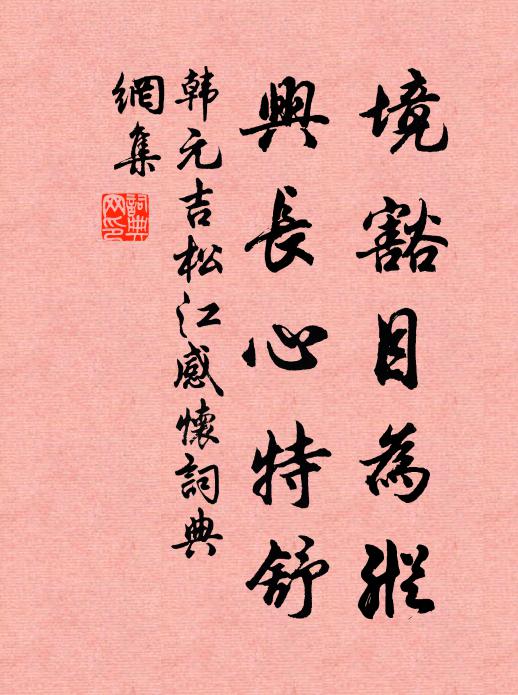 境豁目為縱
興長心特舒
韩元吉松江感懷詞典
網集
詞典
网印